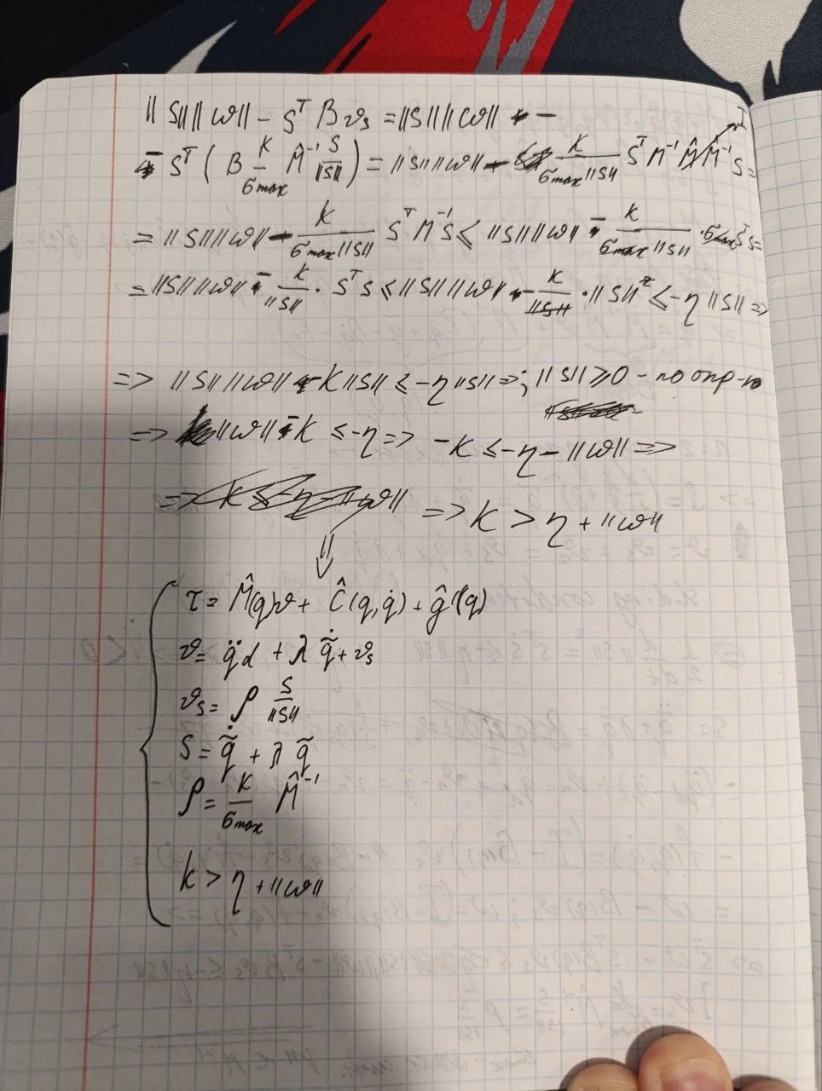 ||s|| ||ω|| − sᵀBvₛ = ||s|| ||ω|| −
− sᵀ(B K/σmax M̂⁻¹ s/||s||) = ||s|| ||ω|| − K/(σmax||s||) sᵀM⁻¹M̂M̂⁻¹s =
= ||s|| ||ω|| − K/(σmax||s||) sᵀM⁻¹s ≤ ||s|| ||ω|| − K/(σmax||s||) · sᵀs =
= ||s|| ||ω|| − K/||s|| · sᵀs ≤ ||s|| ||ω|| − K/||s|| · ||s||² ≤ −η||s|| =>
=> ||s|| ||ω|| − K||s|| ≤ −η||s|| =>; ||s|| ≥ 0 – по опр-ю
=> ||ω|| − K ≤ −η => −K ≤ −η − ||ω|| =>
=> K > η + ||ω||
τ = M̂(q)v + Ĉ(q, q̇) + ĝ(q)
v = q̈d + λ q̃̇ + vₛ
vₛ = ρ s/||s||
s = q̃̇ + λ q̃
ρ = K/σmax M̂⁻¹
k > η + ||ω||